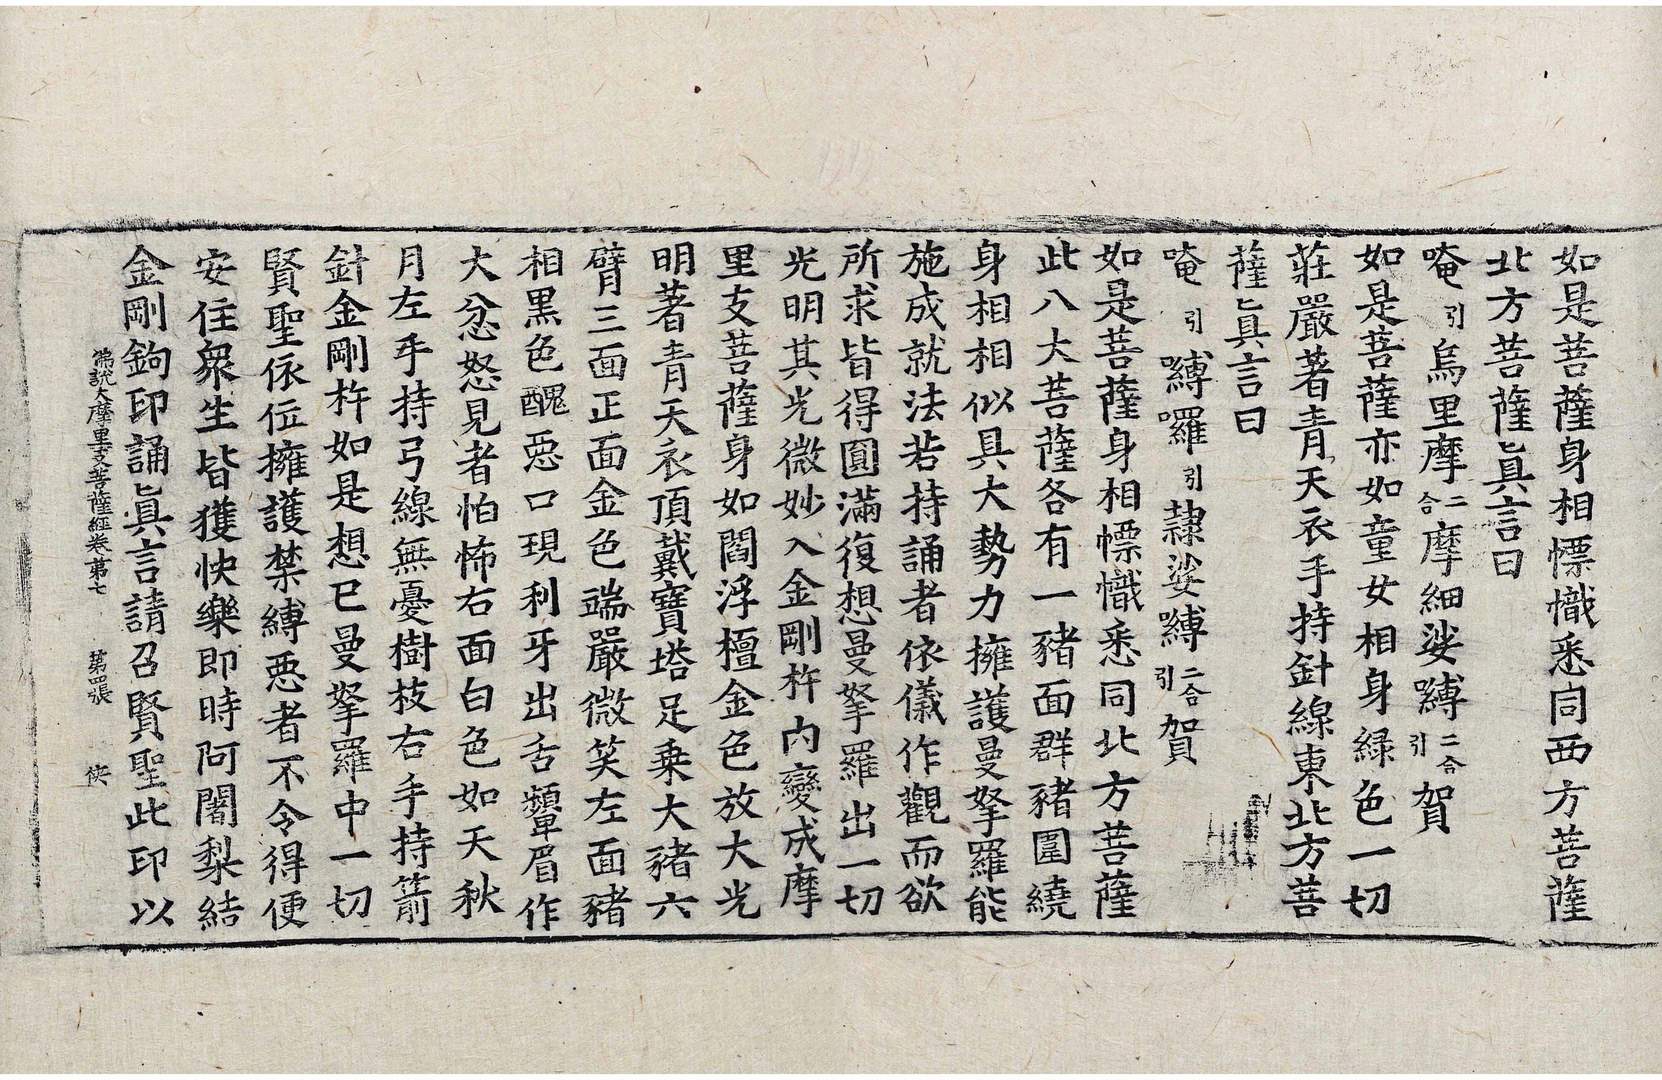 如是菩薩身相幖幟悉同西方菩薩
北方菩薩眞言曰
唵引烏里摩二合摩細娑嚩二合引賀
如是菩薩亦如童女相身綠色一切
莊嚴著青天衣手持針線東北方菩
薩眞言曰
唵引嚩囉引隷娑嚩二合引賀
如是菩薩身相幖幟悉同北方菩薩
此八大菩薩各有一豬面群豬圍繞
身相相似具大勢力擁護曼拏羅能
施成就法若持誦者依儀作觀而欲
所求皆得圓滿復想曼拏羅出一切
光明其光微妙入金剛杵內變成摩
里支菩薩身如閻浮檀金色放大光
明著青天衣頂戴寶塔足乗大豬六
臂三面正面金色端嚴微笑左面豬
相黑色醜惡口現利牙出舌顰眉作
大忿怒見者怕怖右面白色如天秋
月左手持弓線無憂樹枝右手持箭
針金剛杵如是想已曼拏羅中一切
賢聖依位擁護禁縛惡者不令得便
安住衆生皆獲快樂即時阿闍梨結
金剛鉤印誦眞言請召賢聖此印以
佛說大摩里支菩薩經卷第七 第四張 俠